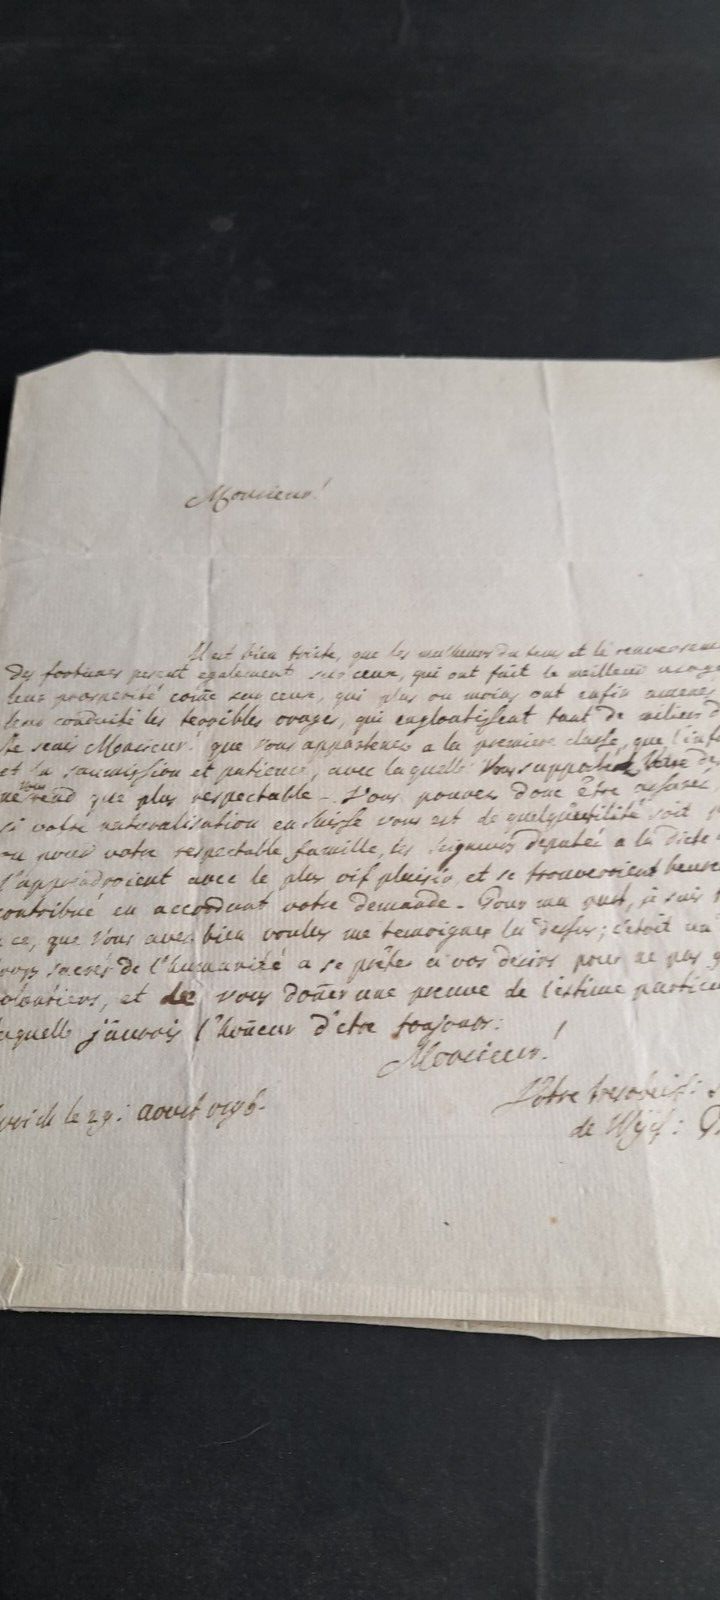 Monsieur!
Il est bien triste, que les malheurs du tems et le renversem
des fortunes pesent egalement sur ceux, qui ont fait le meilleur usage
leur prosperité come sur ceux, qui plus ou moins ont enfin amenés
leur conduite les terribles orages, qui engloutissent tant de miliers d
Je scais Monsieur! que vous appartenes a la premiere classe, que l'inf
et la soumission et patience, avec laquelle Vous supportes
ne vous rend que plus respectable - Vous pouvez donc être assuré,
si votre naturalisation en Suisse vous est de quelqu'utilité soit
ou pour votre respectable famille, les Seigneurs deputés a la Diete
l'apprendroient avec le plus vif plaisir et se trouveroient heure
contribué en accordant votre demande - Pour ma part, je suis
a ce, que Vous aves bien voulu me temoigner la dessus; c'etoit un
sacrés de l'humanité a se prêter a vos desirs pour ne pas
volontiers, et de vous doñer une preuve de l'estime particu
laquelle j'aurois l'hoñeur d'etre toujours:
Monsieur!
Votre tresobeis:
le 29: aout
de